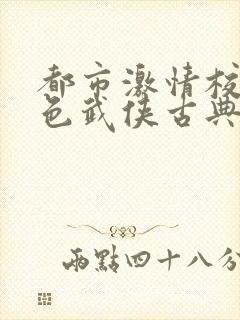 都市激情校
色武侠古典
兩點四十八分